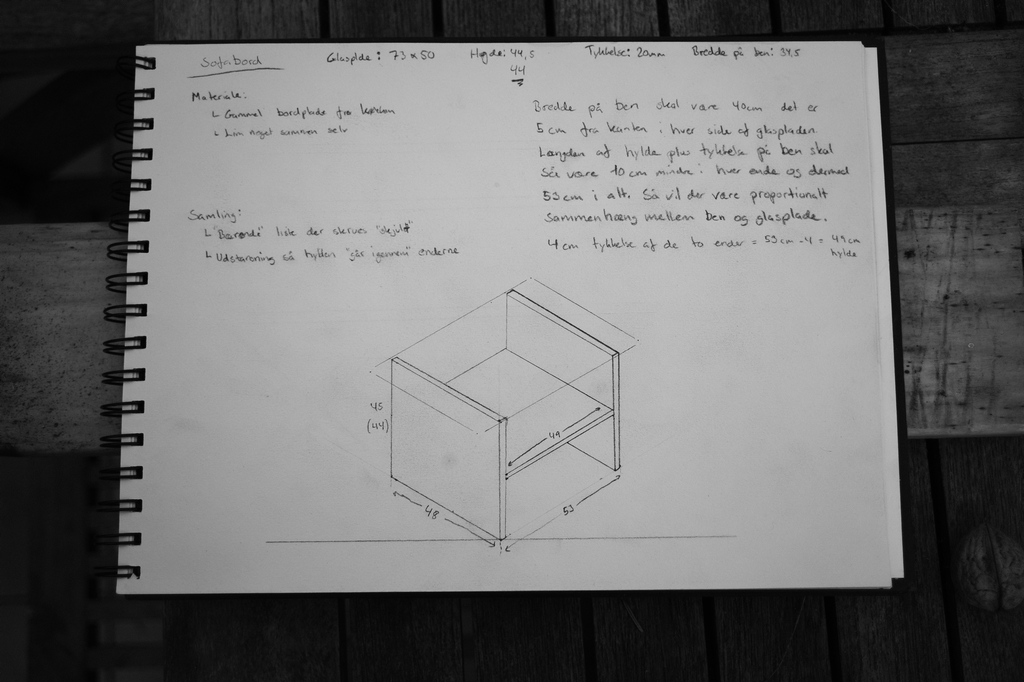 Sofabord
Glasplde: 73 x 50 Højde: 44,5 Tykkelse: 20mm Bredde på ben: 34,5
44
Materiale:
Gammel bordplade fra
Lim noget sammen selv
Samling:
"Bærende" liste der skrues "skjult"
Udstansning så hylden "går igennem" enderne
Bredde på ben skal være 40cm det er
5 cm fra kanten i hver side af glaspladen.
Længden af hylde plus tykkelse på ben skal
så være 10 cm mindre i hver ende og dermed
53 cm i alt. Så vil der være proportionalt
sammenhæng mellem ben og glasplade.
4 cm tykkelse af de to ender = 53 cm - 4 = 49 cm
hylde
45
(44)
49
48
53